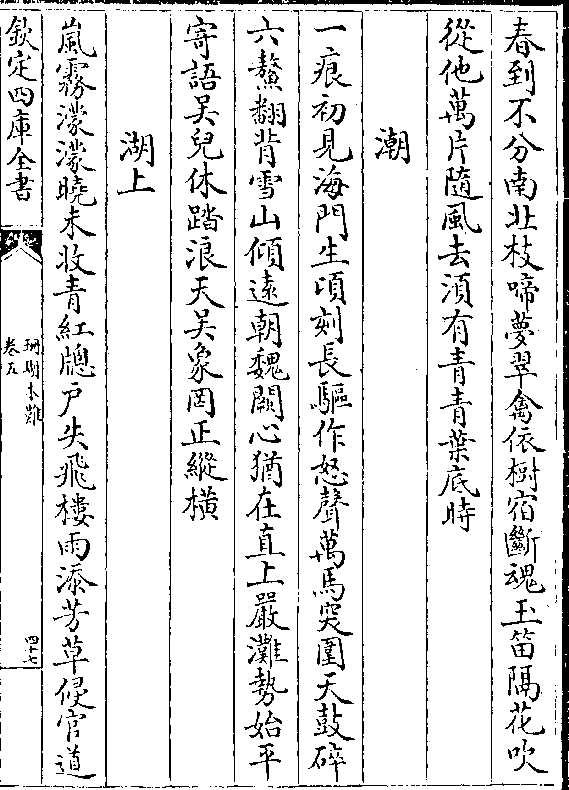 春到不分南北枝啼夢翠禽依樹宿斷魂玉笛隔花吹
從他萬片隨風去須有青青葉底時
潮
一痕初見海門生頃刻長驅作怒聲萬馬突圍天鼓碎
六鰲翻背雪山傾遠朝魏闕心猶在直上嚴灘勢始平
寄語吴兒休踏浪天吴象罔正縱橫
湖上
嵐霧濛濛曉未收青紅牕戶失飛樓雨添芳草侵官道
欽定四庫全書
珊瑚木難
卷五
四十七